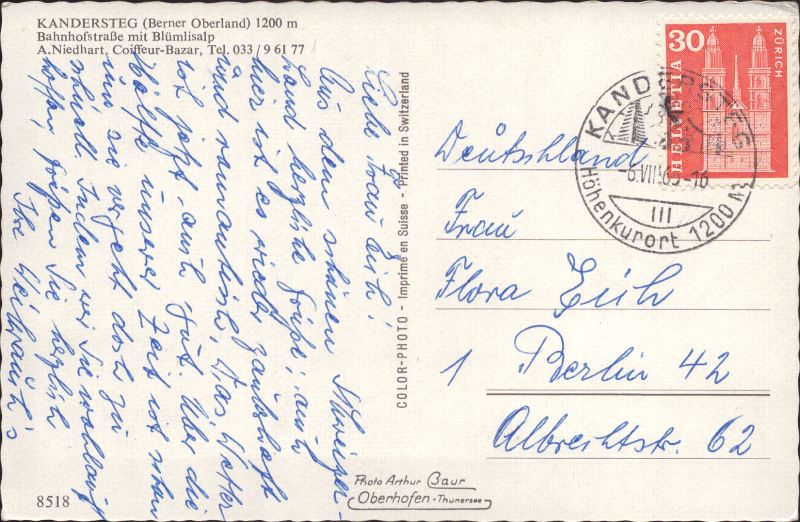 KANDERSTEG (Berner Oberland) 1200 m
Bahnhofstraße mit Blümlisalp
A. Niedhart, Coiffeur-Bazar, Tel. 033 / 9 61 77
Liebe Frau Eich!
Aus dem schönen Schweizer-
Land herzliche Grüße, auch
hier ist es wieder zauberhaft
und romantisch. Das Wetter
ist jetzt auch gut. Über die
Hälfte unserer Zeit ist schon
um, sie vergeht doch zu
schnell. Indem wir Sie wohlauf
hoffen, grüßen Sie herzlich
Ihre
8518
COLOR-PHOTO - Imprimé en Suisse - Printed in Switzerland
Photo Arthur Baur
Oberhofen-Thunersee
30
HELVETIA
ZÜRICH
KANDERSTEG
-6.VIII.65-16
III
Höhenkurort 1200 m
Deutschland
Frau
Flora Eich
1 Berlin 42
Albrechtstr. 62